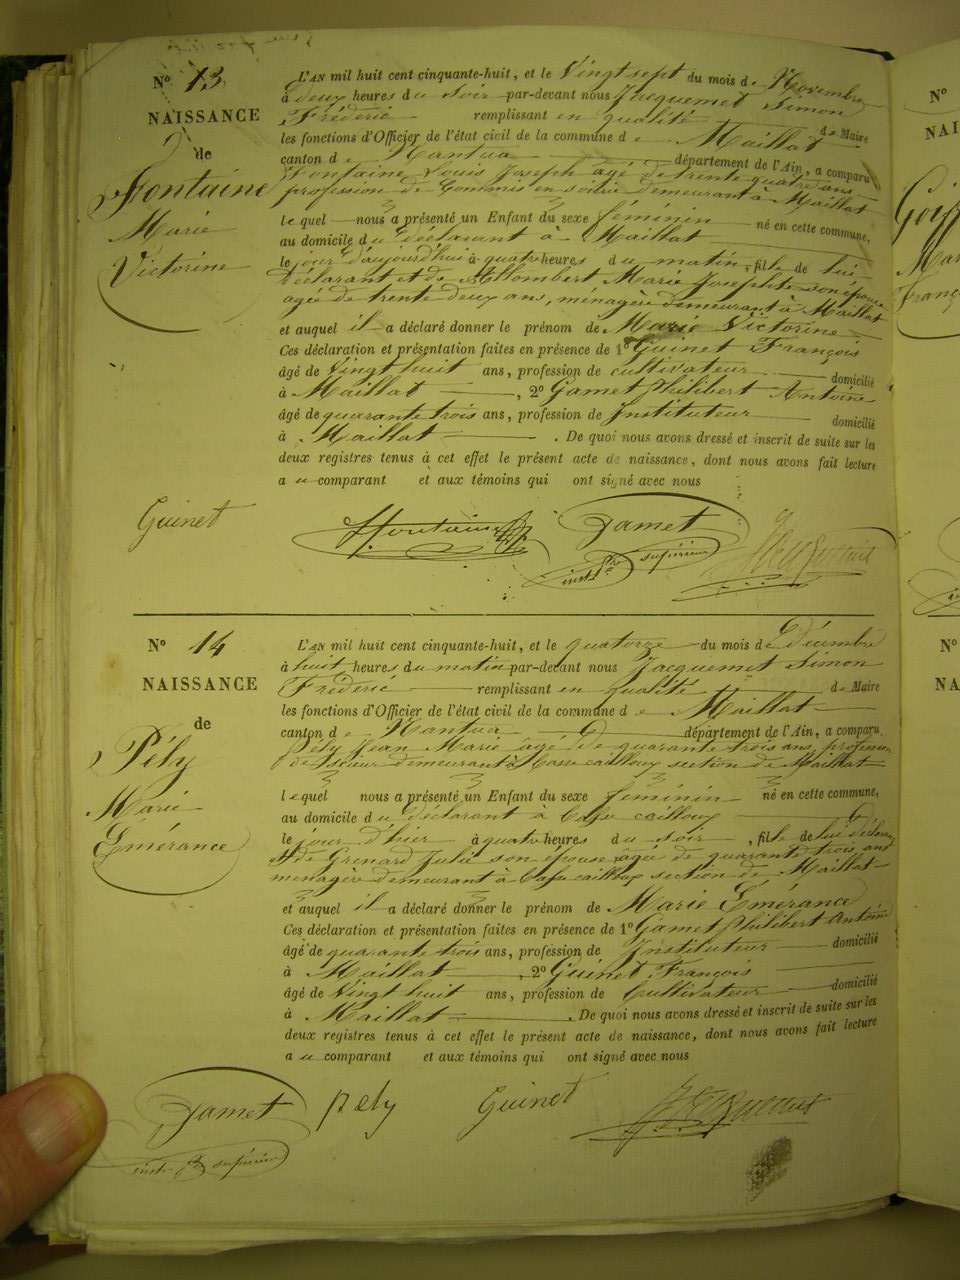 N° 13
NAISSANCE
de
Fontaine
Marie
Victorine
L'AN mil huit cent cinquante-huit, et le Vingt sept du mois de Novembre
à deux heures du soir par-devant nous Jacquemet Simon
Fréderic remplissant en qualité de Maire
les fonctions d'Officier de l'état civil de la commune de Maillat
canton de Nantua département de l'Ain, a comparu
Fontaine Louis Joseph agé de trente quatre ans
profession de Commis en soierie demeurant à Maillat
lequel nous a présenté un Enfant du sexe féminin né en cette commune,
au domicile du déclarant à Maillat
le jour d'aujourd'hui à quatre heures du matin, fille de lui
déclarant et de Allombert Marie Josephte son épouse
agée de trente deux ans, ménagère demeurant à Maillat
et auquel il a déclaré donner le prénom de Marie Victorine
Ces déclaration et présentation faites en présence de 1° Guinet François
âgé de Vingt huit ans, profession de cultivateur domicilié
à Maillat, 2° Gamet Philibert Antoine
âgé de quarante trois ans, profession de Instituteur domicilié
à Maillat. De quoi nous avons dressé et inscrit de suite sur les
deux registres tenus à cet effet le présent acte de naissance, dont nous avons fait lecture
au comparant et aux témoins qui ont signé avec nous
Guinet Fontaine Gamet
supérieur
N° 14
NAISSANCE
de
Pély
Marie
Émérance
L'AN mil huit cent cinquante-huit, et le quatorze du mois de décembre
à huit heures du matin par-devant nous Jacquemet Simon
Fréderic remplissant en qualité de Maire
les fonctions d'Officier de l'état civil de la commune de Maillat
canton de Nantua département de l'Ain, a comparu
Pély Jean Marie âgé de quarante trois ans, profession
de scieur demeurant à Casse cailloux section de Maillat
lequel nous a présenté un Enfant du sexe féminin né en cette commune,
au domicile du déclarant à Casse cailloux
le jour d'hier à quatre heures du soir, fille de lui déclarant
et de Grenard Julie son épouse agée de quarante trois ans
ménagère demeurant à Casse cailloux section de Maillat
et auquel il a déclaré donner le prénom de Marie Émérance
Ces déclaration et présentation faites en présence de 1° Gamet Philibert Antoine
âgé de quarante trois ans, profession de Instituteur domicilié
à Maillat, 2° Guinet François
âgé de Vingt huit ans, profession de Cultivateur domicilié
à Maillat. De quoi nous avons dressé et inscrit de suite sur les
deux registres tenus à cet effet le présent acte de naissance, dont nous avons fait lecture
au comparant et aux témoins qui ont signé avec nous
Gamet pely Guinet
supérieur
N°
NAI
N°
NA